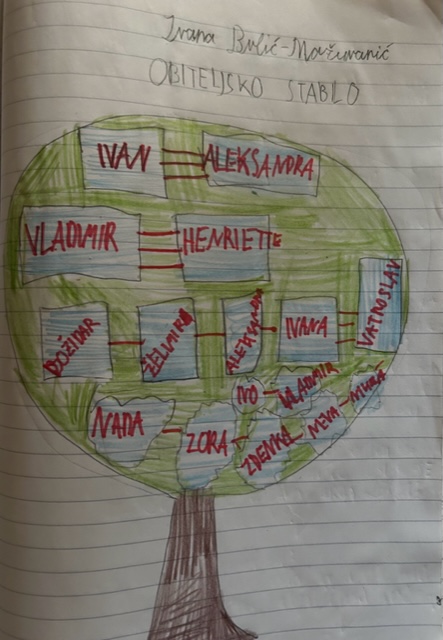 Ivana Brlić-Mažuranić
OBITELJSKO STABLO
IVAN ALEKSANDRA
VLADIMIR HENRIETTE
BOŽIDAR ŽELIMIR ALEKSANDA IVANA VATROSLAV
IVO VLADIMIR
NADA ZORA ZDENKA NEVA